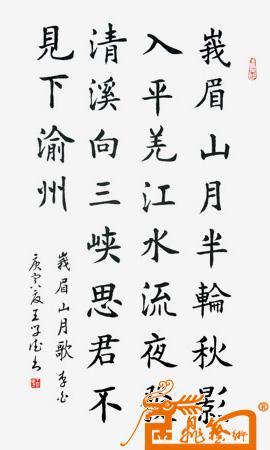 峩眉山月半輪秋影
入平羌江水流夜發
清溪向三峡思君不
見下渝州
峩眉山月歌 李白
庚寅夏王学德书